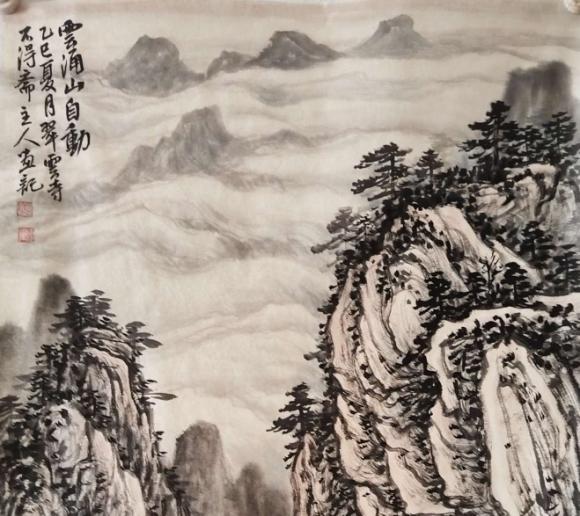 雲涌山自動
乙巳夏月翠雲寺
不得齋主人畫記